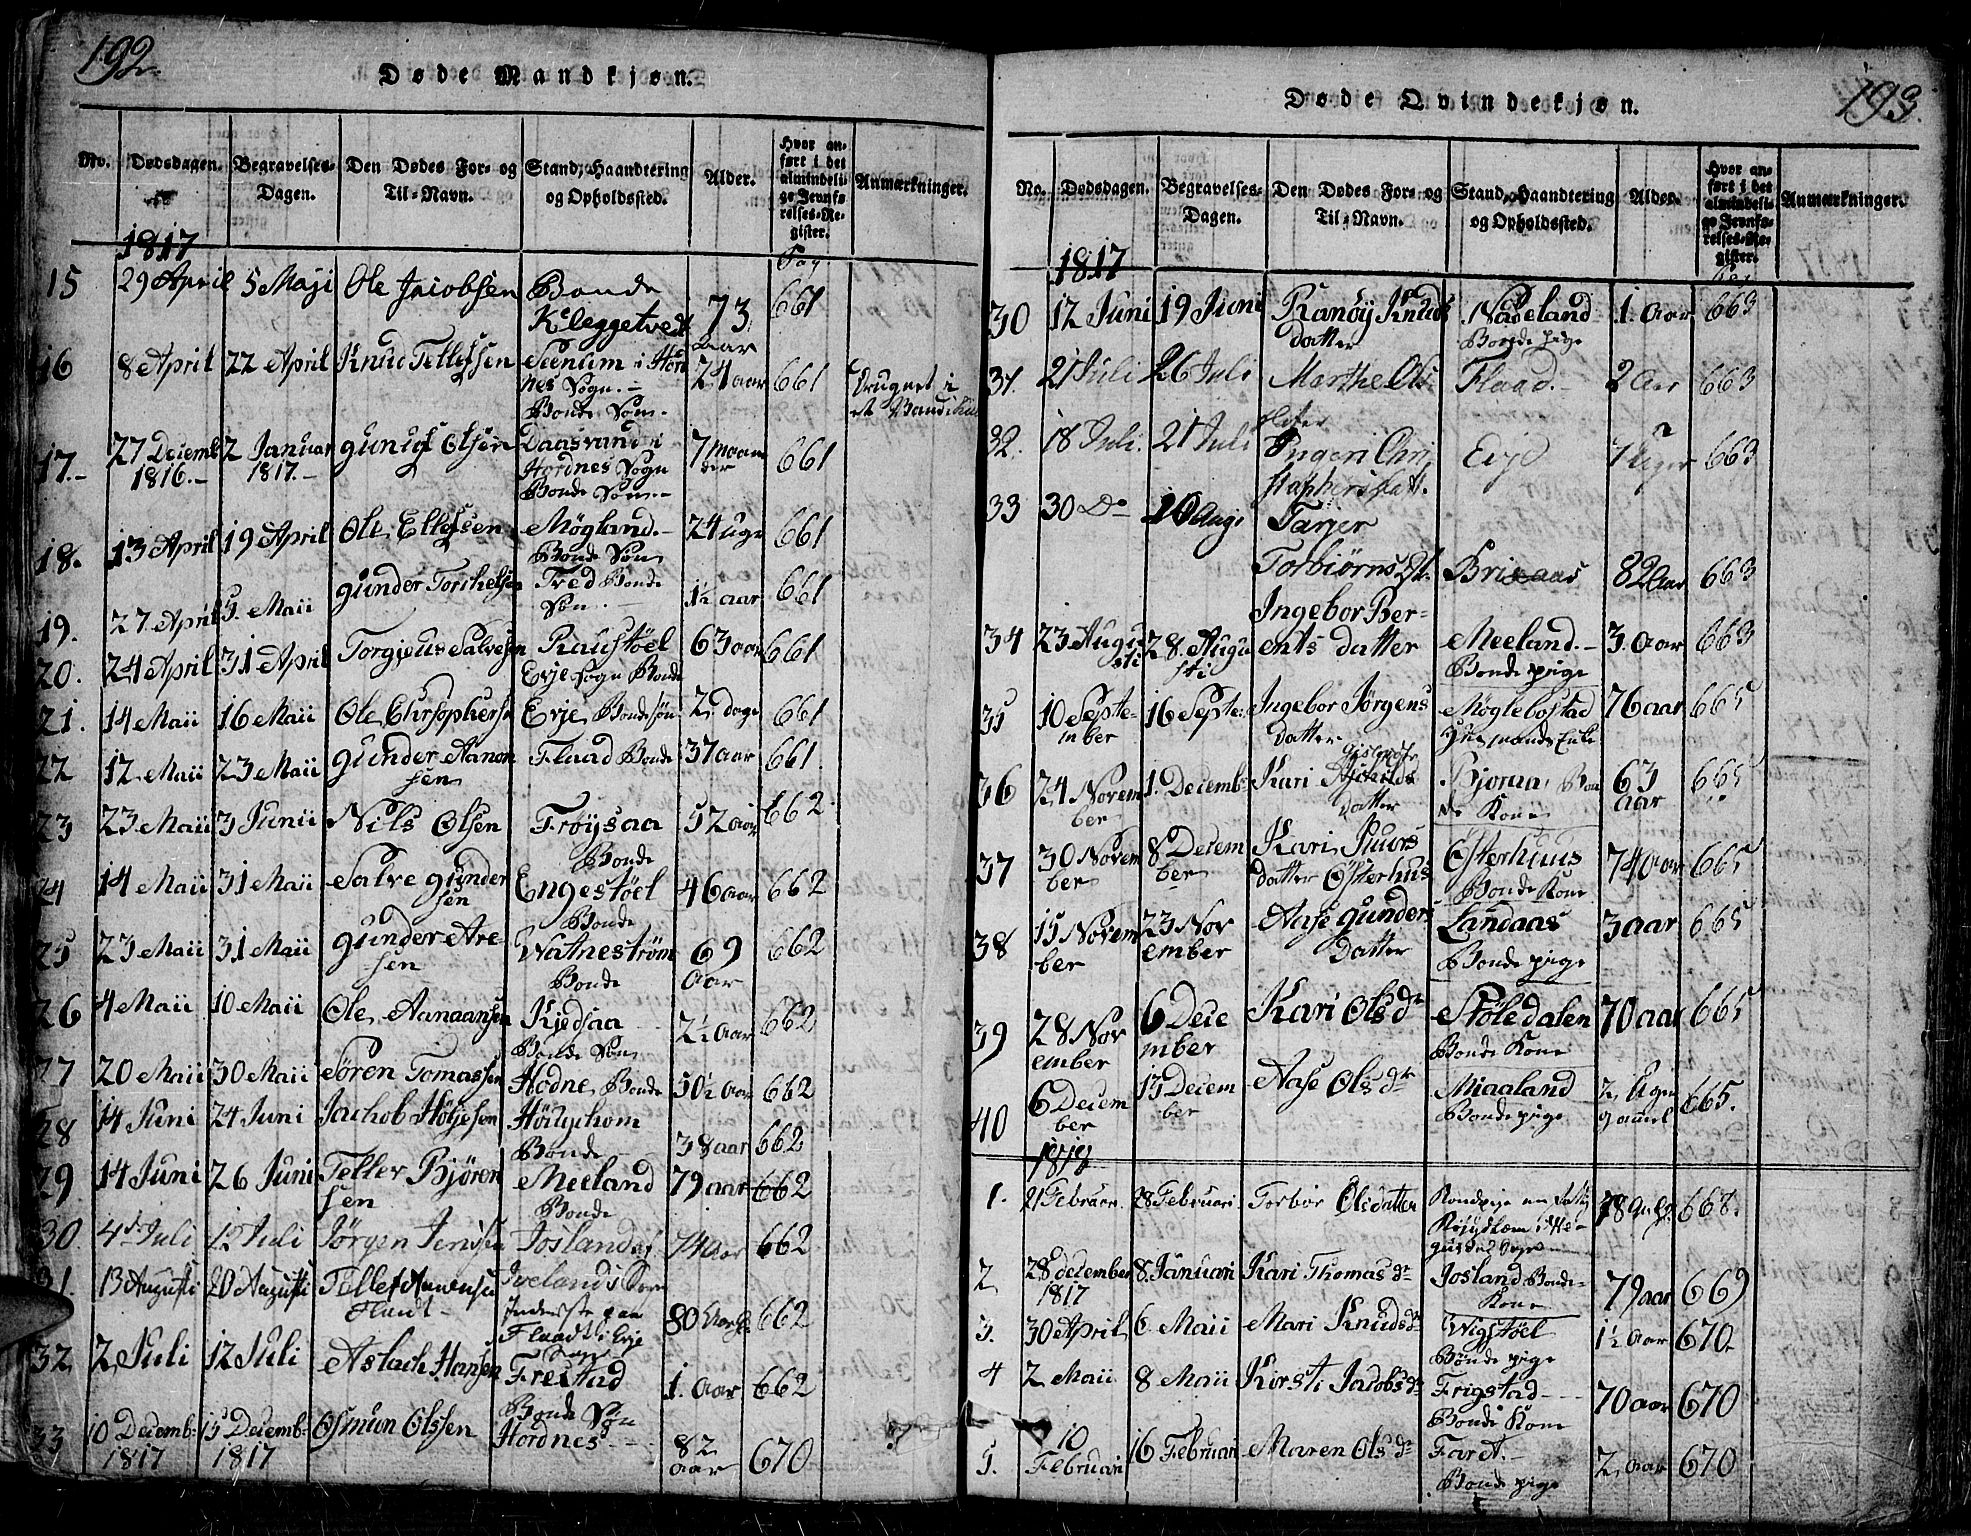 192
Døde Mandkjøn.
No. Dødsdagen. Begravelses-Dagen. Den Dødes For- og Til-Navn. Stand, Haandtering og Opholdssted. Alder. Hvor anført i det almindelige Jevnførelses-Register. Anmærkninger.
1817 Pag
15 29 April 5 Maji Ole Jacobsen Bonde
Kleggetvedt 73 aar 661
16 8 April 22 April Knud Tellefsen Senum i Hor
nes Sogn. - Bonde Søn. 24 aar 661 Drugnet i
17. 27 Decemb 1816. 2 Januar 1817. gunuf Olsen Daasvand i
Hordnes Sogn
Bonde Søn. 7 maaneder 661
18. 13 April 19 April Ole Ellefsen Møgland. -
Bonde Søn 24 uge 661
19. 27 April 5. Maii gunder Torchelsen Tred Bonde
Søn. 1½ aar 661
20. 24 April 31 April Torgjeus Salvesen Raustøel
Evje Sogn Bonde 63 aar 661
21. 14 Maii 16 Maii Ole Chrsophersn Evje Bondesøn 2 dage 661
22 12 Maii 23 Maii gunder Aanon
sen Flaad Bonde 37 aar 661.
23 23 Maii 3 Junii Nils Olsen Frøysaa
Bonde 52 aar 662
24 14 Maii 31 Maii Salve gunder
sen Engestøel
Bonde 46 aar 662
25 23 Maii 31 Maii gunder Are-
sen Watnestrøm
Bonde 69 aar 662
26 4 Maii 10 Maii Ole Aanaansen Kjedsaa
Bonde Søn 2½ aar 662
27 20 Maii 30 Maii Sören Tomassen Hodne Bonde 50½ aar 662
28 14 Juni 24 Juni Jachob Höljesen
Bonde 38 aar 662
29 14 Juni 26 Juni Tellef Björen
sen Meeland
Bonde 79 aar 662
30 4de Juli 12 Juli Jørgen Jensen Josland 74 aar 662
31. 13 Augusti 20 Augusti Tellef
Flaadt Ivelands Sogn
Inderste paa
Flaadt i Evje
Sogn 80 662
32 2 Juli 12 Juli Aslach Hansen Freistad
Bonde Søn 1. aar 662
33 10 Decemb: 1817 15 Decemb: 1817 Osmun Olssen Hordnes. 82 aar 670
193.
Døde Qvindekjøn.
No. Dødsdagen. Begravelses-Dagen. Den Dødes For- og Til-Navn. Stand, Haandtering og Opholdssted. Alder. Hvor anført i det almindelige Jevnførelses-Register. Anmærkninger.
1817
30 12 Juni 19 Juni Ranøy Knuds
datter Nadeland
Bonde pige 1. aar 663
31. 21 Juli 26 Juli Marthe Ols
datter Flaad. 2 aar 663
32. 18 Juli. 21 Juli Ingeri Chri
stophersdatt. Evje 7 uger 663
33 30 Do 10 Aug: Tarjer
Torbiørns Dt. Brisaas 82 aar 663
34 23 Augusti 28. Augusti Ingebor Ber-
ents datter Meeland. -
Bonde pige 3. aar 663
35 10 September 16 Septe: Ingebor Jørgens
datter Møglebostad
Huusmands Enke 76 aar 665
36 24 November 1. Decemb: Kari
datter Bjoraa, Bon
de Kone 63 aar 665
37 30 November 8 December Kari Siuors
datter Østerhus Østerhuus
Bonde Kone 74 aar 665
38 15 November 23 November Aase gunders
Datter Landaas
Bonde pige 3 aar 665
39 28 November 6 December Kari Ols dr Støledalen
Bonde Kone 70 aar 665
40 6 December 13 December Aase Ols dr Miaaland
Bonde pige 2 Uger gamel 665.
1818
1. 21 Februar. 28 Februari Torbor Olsdatter 668.
2 28 december 1817 8. Januari Kari Thomas dr Josland Bonde-
Kone 79 aar 669
3. 30 April 6 Maii Mari Knuds dr Wigstøel
Bonde pige 1½ aar 670
4 2 Maii 8 Maii Kirsti Jacobs dr Frigstad
Bonde Kone 70 aar 670
5. 10 Februari 16 Februari Maren Ols dr Faret. -
Bonde pige 2 aar 670